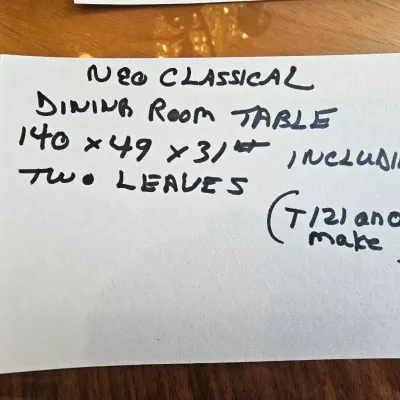 NEO CLASSICAL
DINING ROOM TABLE
140 x 49 x 31 HT INCLUDI
TWO LEAVES
(T121 and
make